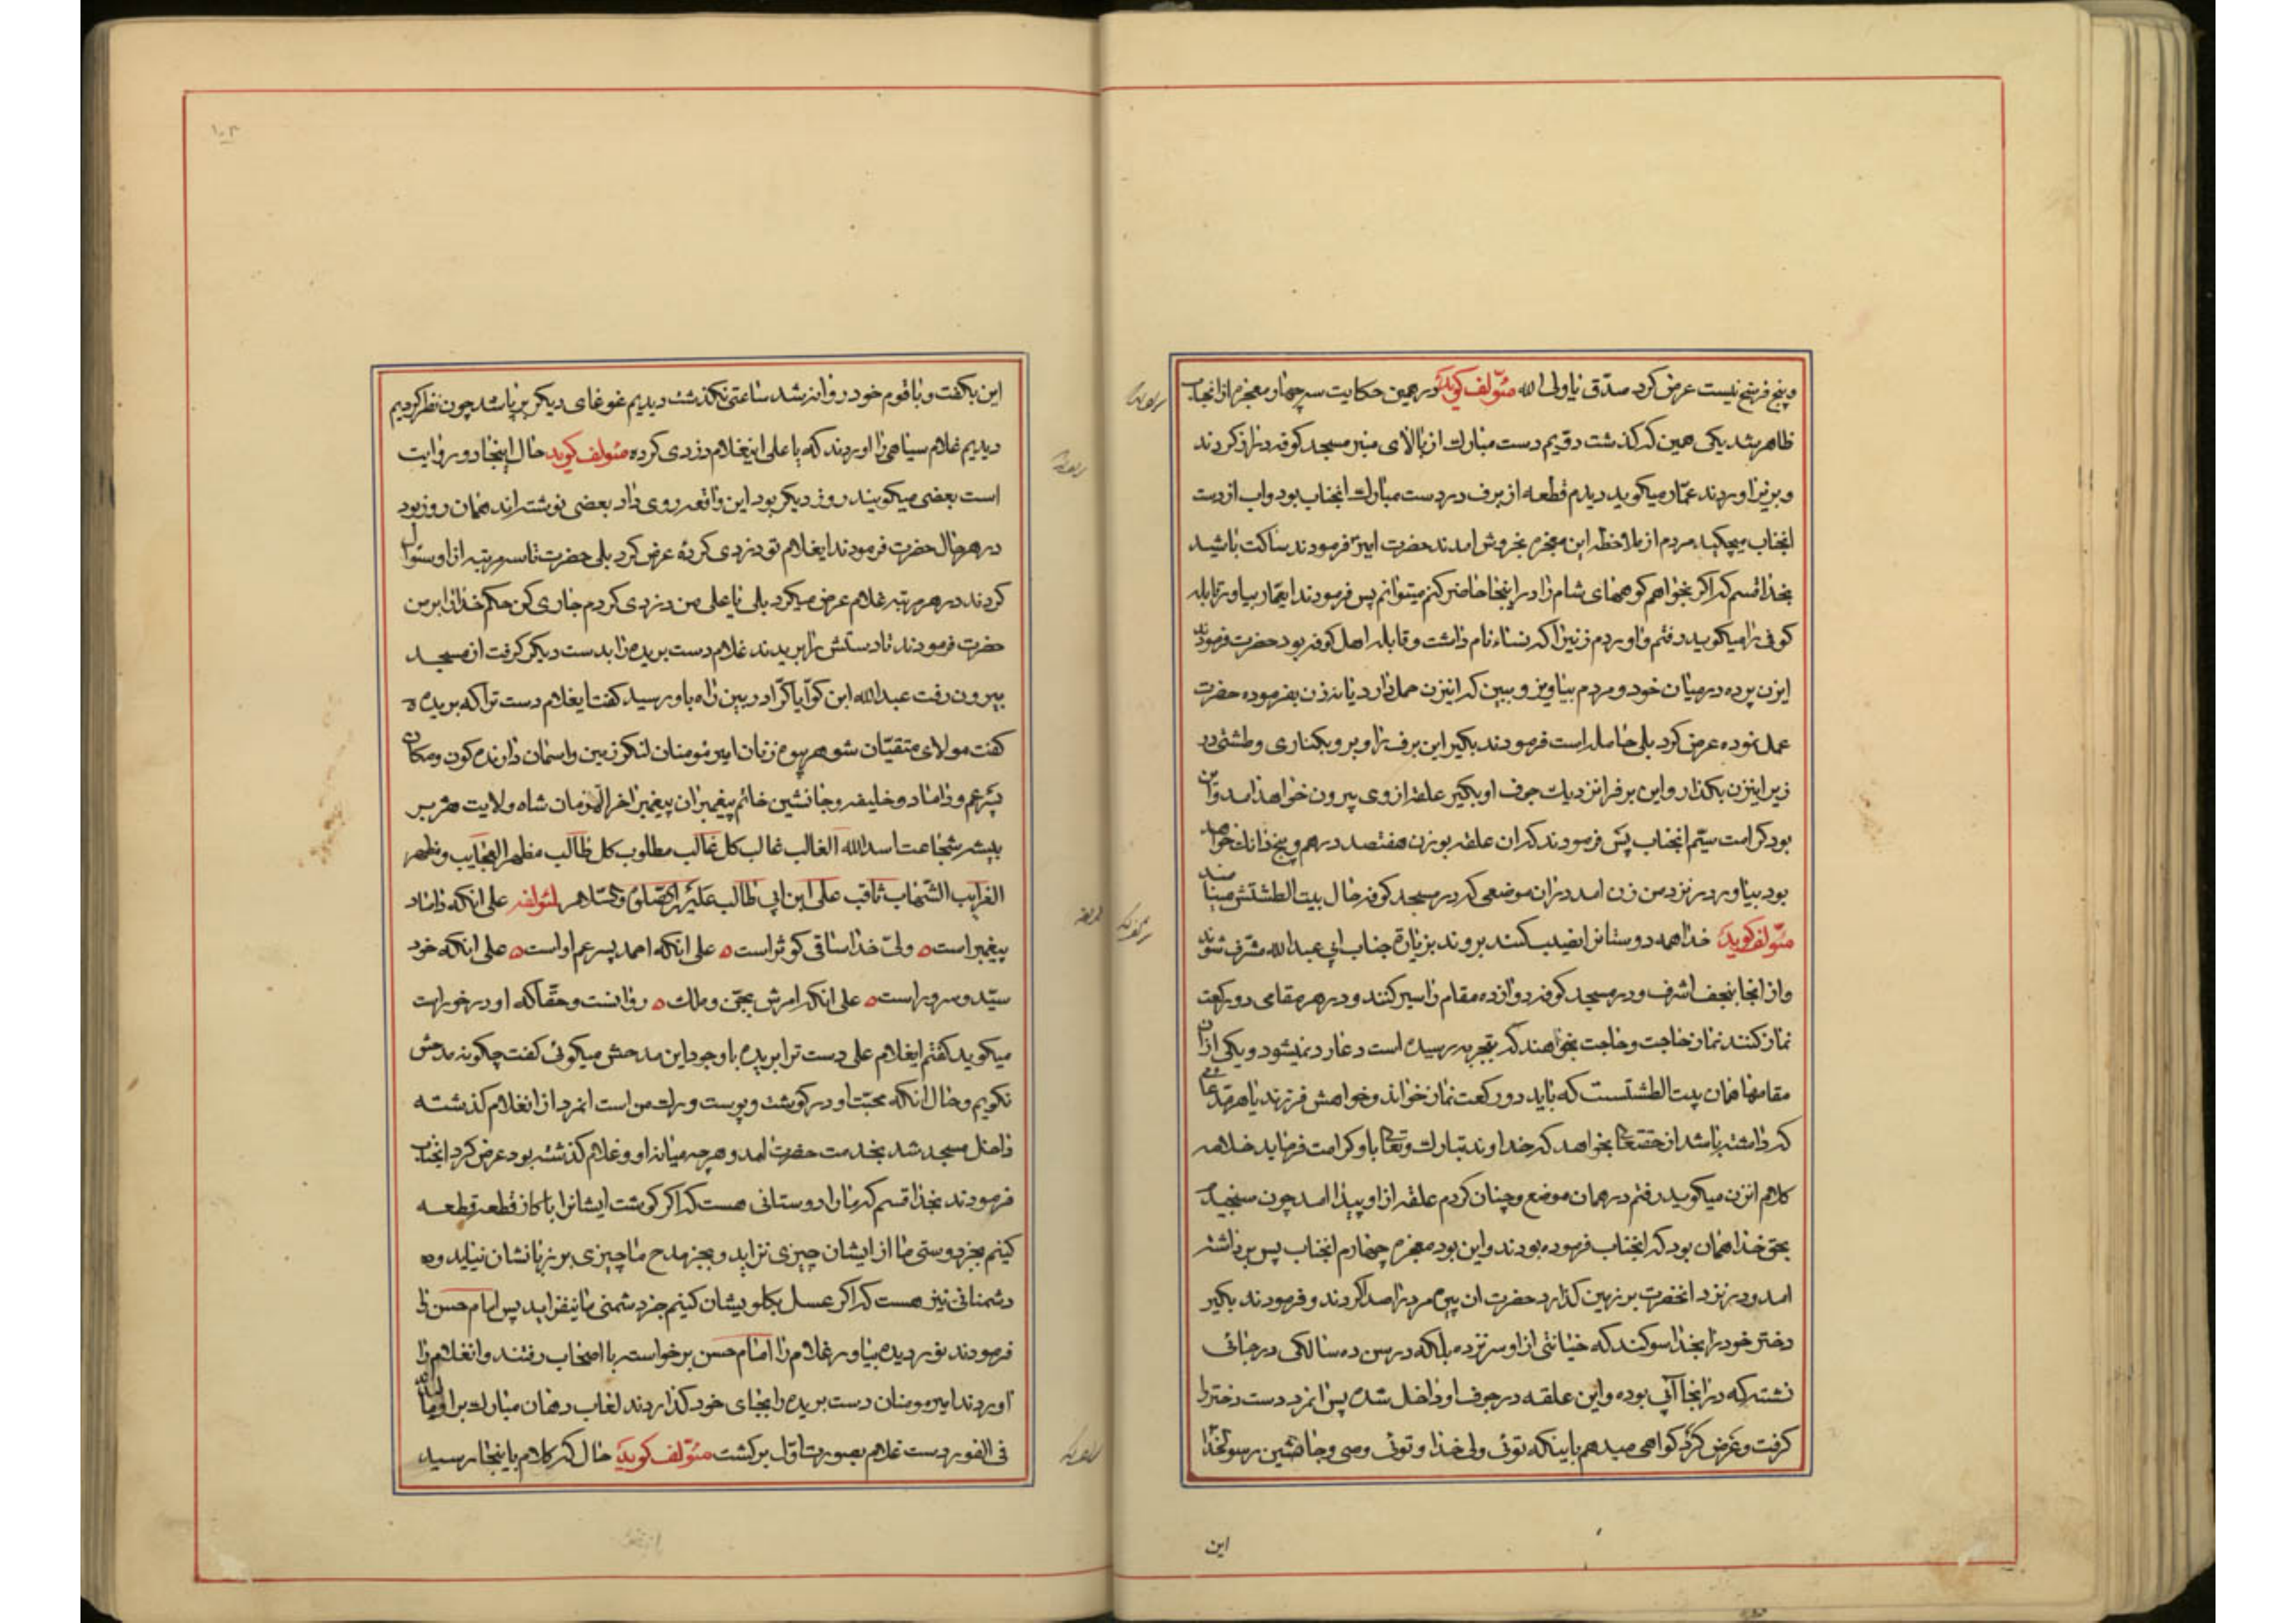 و پنج فرسخ نیست عرض کرد صدّق یا ولی الله مئولف کوید در همین حکایت سه چهار معجزه از انجناب
ظاهر شد یکی همین که کذشت دوّیم دست مبارک از بالای منبر مسجد کوفه دراز کردند
و برف اوردند عمّار میکوید دیدم قطعه از برف در دست مبارک انجناب بود و اب از دست
انجناب میچکید مردم از ملاحظه این معجزه بخروش امدند حضرت امیر فرمودند ساکت باشید
بخدا قسم که اکر بخواهم کوههای شام را در اینجا حاضر کنم میتوانم پس فرمودند ایعمّار بیاور قابله
کوفی را میکوید رفتم و اوردم زنیرا که نساء نام داشت و قابله اهل کوفه بود حضرت فرمودند
ایزن پرده در میان خود و مردم بیاویز و ببین که اینزن حمل دارد یا نه زن بفرموده حضرت
عمل نموده عرض کرد بلی حامله است فرمودند بکیر این برف را و برو بکناری و طشتی در
زیر اینزن بکذار و این برفرا نزدیک جوف او بکیر علقه از وی بیرون خواهد امد و این
بود کرامت سیّم انجناب پس فرمودند که ان علقه بوزن هفتصد درهم و پنج دانک خواهد
بود بیاور در نزد من زن امد در ان موضعی که در مسجد کوفه حال بیت الطشتش مینامند
مئولف کوید خدا همه دوستانرا نصیب کند بروند بزیارة جناب ابی عبدالله مشرّف شوند
و از انجا بنجف اشرف و در مسجد کوفه دوازده مقام را سیر کنند و در هر مقامی دو رکعت
نماز کنند نماز حاجت و حاجت بخواهند که بتجربه رسیده است دعا رد نمیشود و یکی از ان
مقامها همان بیت الطشتست که باید دو رکعت نماز خواند و خواهش فرزند یا هر مدّعائی
که داشته باشد از حقتعالی بخواهد که خداوند تبارک و تعالی باو کرامت فرماید خلاصه
کلام انزن میکوید رفتم در همان موضع و چنان کردم علقه از او پیدا امد چون سنجیدم
بحق خدا همان بود که انجناب فرموده بودند و این بود معجزه چهارم انجناب پس برداشته
امد و در نزد انحضرت بر زمین کذارد حضرت ان پیره مرد را صدا کردند و فرمودند بکیر
دختر خود را بخدا سوکند که خیانتی از او سر نزده بلکه در سن ده سالکی در جائی
نشسته که در انجا آبی بوده و این علقه در جوف او داخل شده پس انمرد دست دختر را
کرفت و عرض کرد کواهی میدهم باینکه توئی ولی خدا و توئی وصی و جانشین رسولخدا
این
۱۰۳
این بکفت و با قوم خود روانه شد ساعتی نکذشت دیدیم غوغای دیکر برپا شد چون نظر کردیم
دیدیم غلام سیاهی را اوردند که یا علی اینغلام دزدی کرده مئولف کوید حال اینجا دو روایت
است بعضی میکویند روز دیکر بود این واقعه روی داد بعضی نوشته اند همان روز بود
در هر حال حضرت فرمودند ایغلام تو دزدی کرده عرض کرد بلی حضرت تا سه مرتبه از او سئوال
کردند در هر مرتبه غلام عرض میکرد بلی یا علی من دزدی کردم جاری کن حکم خدا را بر من
حضرت فرمودند تا دستش را بریدند غلام دست بریده را بدست دیکر کرفت از مسجد
بیرون رفت عبدالله ابن کوّا در بین راه باو رسید کفت ایغلام دست ترا که بریده
کفت مولای متقیّان شوهر بیوه زنان امیر مومنان لنکر زمین و اسمان دارنده کون و مکان
پسر عم و داماد و خلیفه و جانشین خاتم پیغمبران پیغمبر اخر الزمان شاه ولایت هژبر
بیشه شجاعت اسدالله الغالب غالب کل غالب مطلوب کل طالب مظهر العجایب و مظهر
الغرایب الشّهاب ثاقب علی ابن ابی طالب علیه الصلوة و السّلام لمئولفه علی انکه داماد
پیغمبر است ولیّ خدا ساقی کوثر است علی انکه احمد پسر عم اواست علی انکه خود
سیّد و سرور است علی انکه امرش بجنّ و ملک روانست و حقّا که او در خور است
میکوید کفتم ایغلام علی دست ترا بریده با وجود این مدحش میکوئی کفت چکونه مدحش
نکویم و حال انکه محبّت او در کوشت و پوست و رک من است انمرد از انغلام کذشته
داخل مسجد شد بخدمت حضرت امد و هر چه میانه او و غلام کذشته بود عرض کرد انجناب
فرمودند بخدا قسم که ما را دوستانی هست که اکر کوشت ایشانرا با کاز قطعه قطعه
کنیم بجز دوستی ما از ایشان چیزی نزاید و بجز مدح ما چیزی بر زبانشان نیاید و
دشمنانی نیز هست که اکر عسل بکلویشان کنیم جز دشمنی ما نیفزاید پس امام حسن را
فرمودند نور دیده بیاور غلام را امام حسن برخواست با اصحاب رفتند و انغلام را
اوردند امیر مومنان دست بریده را بجای خود کذاردند لعاب دهان مبارک بر او مالیدند
فی الفور دست غلام بصورت اول برکشت مئولف کوید حال که کلام باینجا رسید